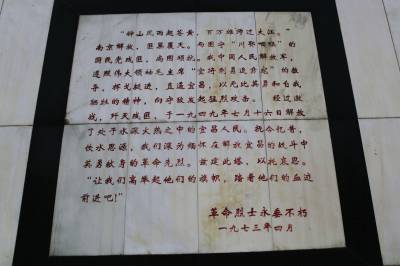 “钟山风雨起苍黄，百万雄师过大江。”
南京解放，匪巢覆灭。向困守“川鄂咽喉”的
国民党残匪，负固顽抗。我中国人民解放军，
遵照伟大领袖毛主席“宜将剩勇追穷寇”的教
导，挥戈挺进，直逼宜昌，以无比英勇和自我
牺牲的精神，向守敌发起猛烈攻击。经过激
战，歼灭残匪，于一九四九年七月十六日解放
了处于水深火热之中的宜昌人民。抚今忆昔，
饮水思源，我们深为缅怀在解放宜昌的战斗中
英勇献身的革命先烈。兹建此塔，以托哀思。
“让我们高举起他们的旗帜，踏着他们的血迹
前进吧！”
革命烈士永垂不朽
一九七三年四月